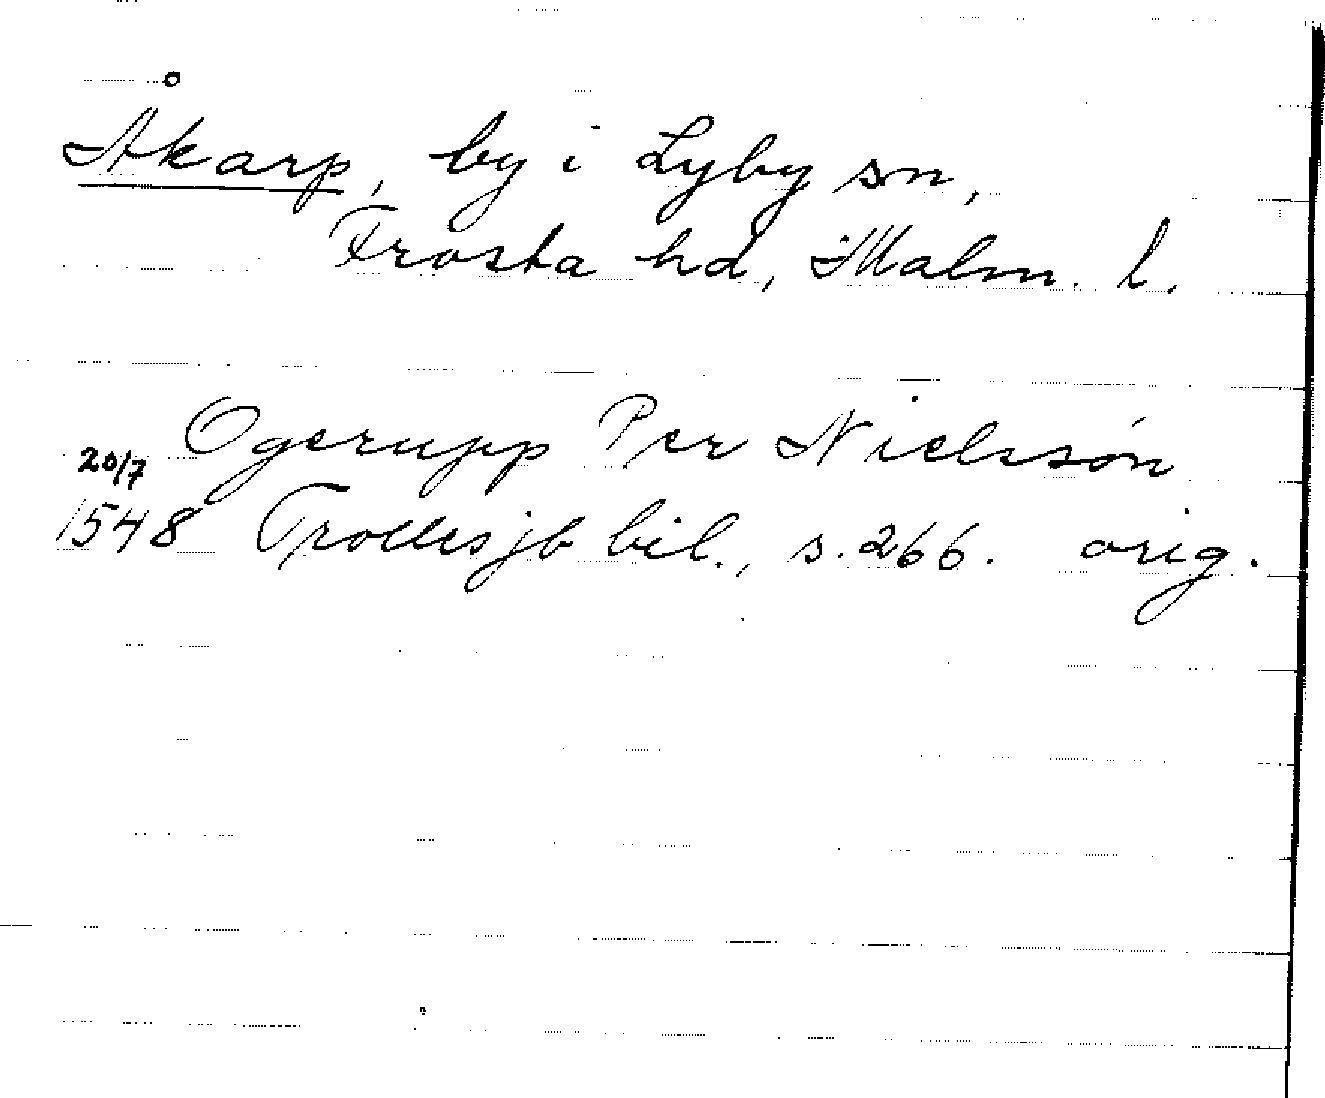 Åkarp, by i Lyby sn,
Frosta hd, Malm. l.
Ogerupp Per Nielssøn
20/7
1548 Trolles jb bil., s. 266. orig.